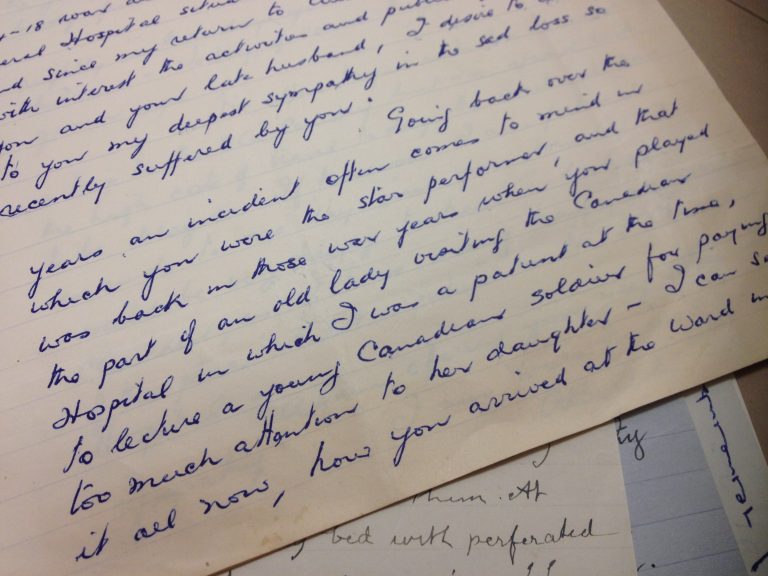 4-18 war
Hospital
and since my return to
with interest the activities and
you and your late husband, I desire to
to you my deepest sympathy in the sad loss so
recently suffered by you. Going back over the
years an incident often comes to mind in
which you were the star performer, and that
was back in those war years when you played
the part of an old lady visiting the Canadian
Hospital in which I was a patient at the time,
to lecture a young Canadian soldier for paying
too much attention to her daughter - I can
it all now, how you arrived at the ward
them. At
bed with perforated